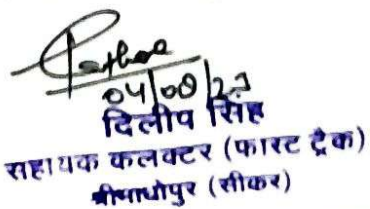 04/08/23
दिलीप सिंह
सहायक कलक्टर (फास्ट ट्रैक)
श्रीमाधोपुर (सीकर)